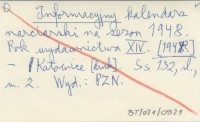 Informacyjny kalendarz
narciarski na sezon 1948.
Rok wydawnictwa XIV. [1948.]
– Katowice [druk] Ss. 132, il.,
m. 2. Wyd.: PZN.
BJ/021/0921